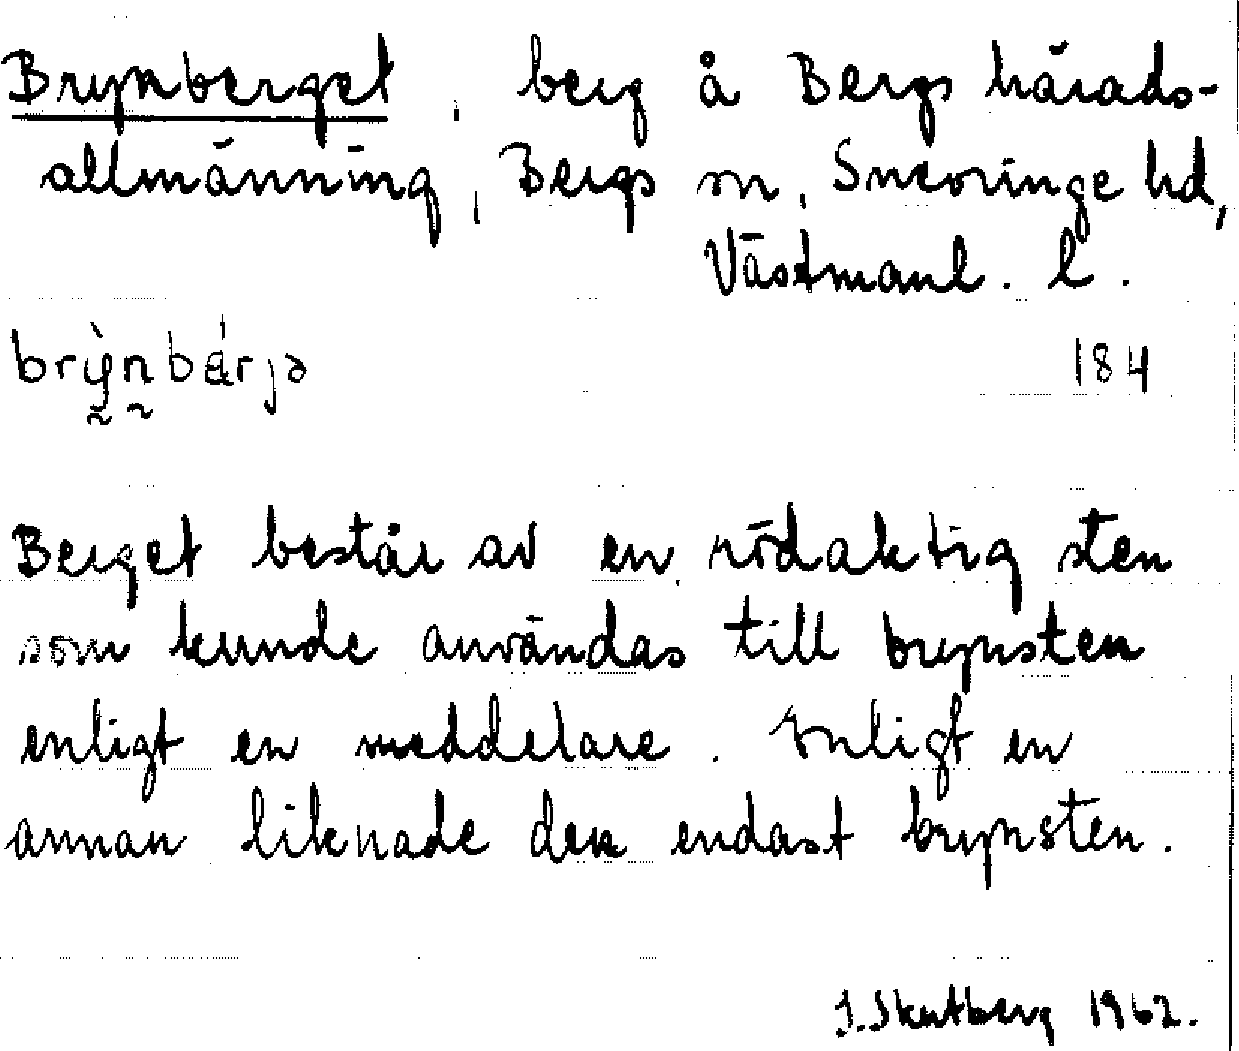 Brynberget, berg å Bergs härads-
allmänning, Bergs sn, Snevringe hd,
Västmanl. l.
brỳn̰bɛ́rjə 184
Berget består av en rödaktig sten
som kunde användas till brynsten
enligt en meddelare. Enligt en
annan liknade den endast brynsten.
J. Skutberg 1962.